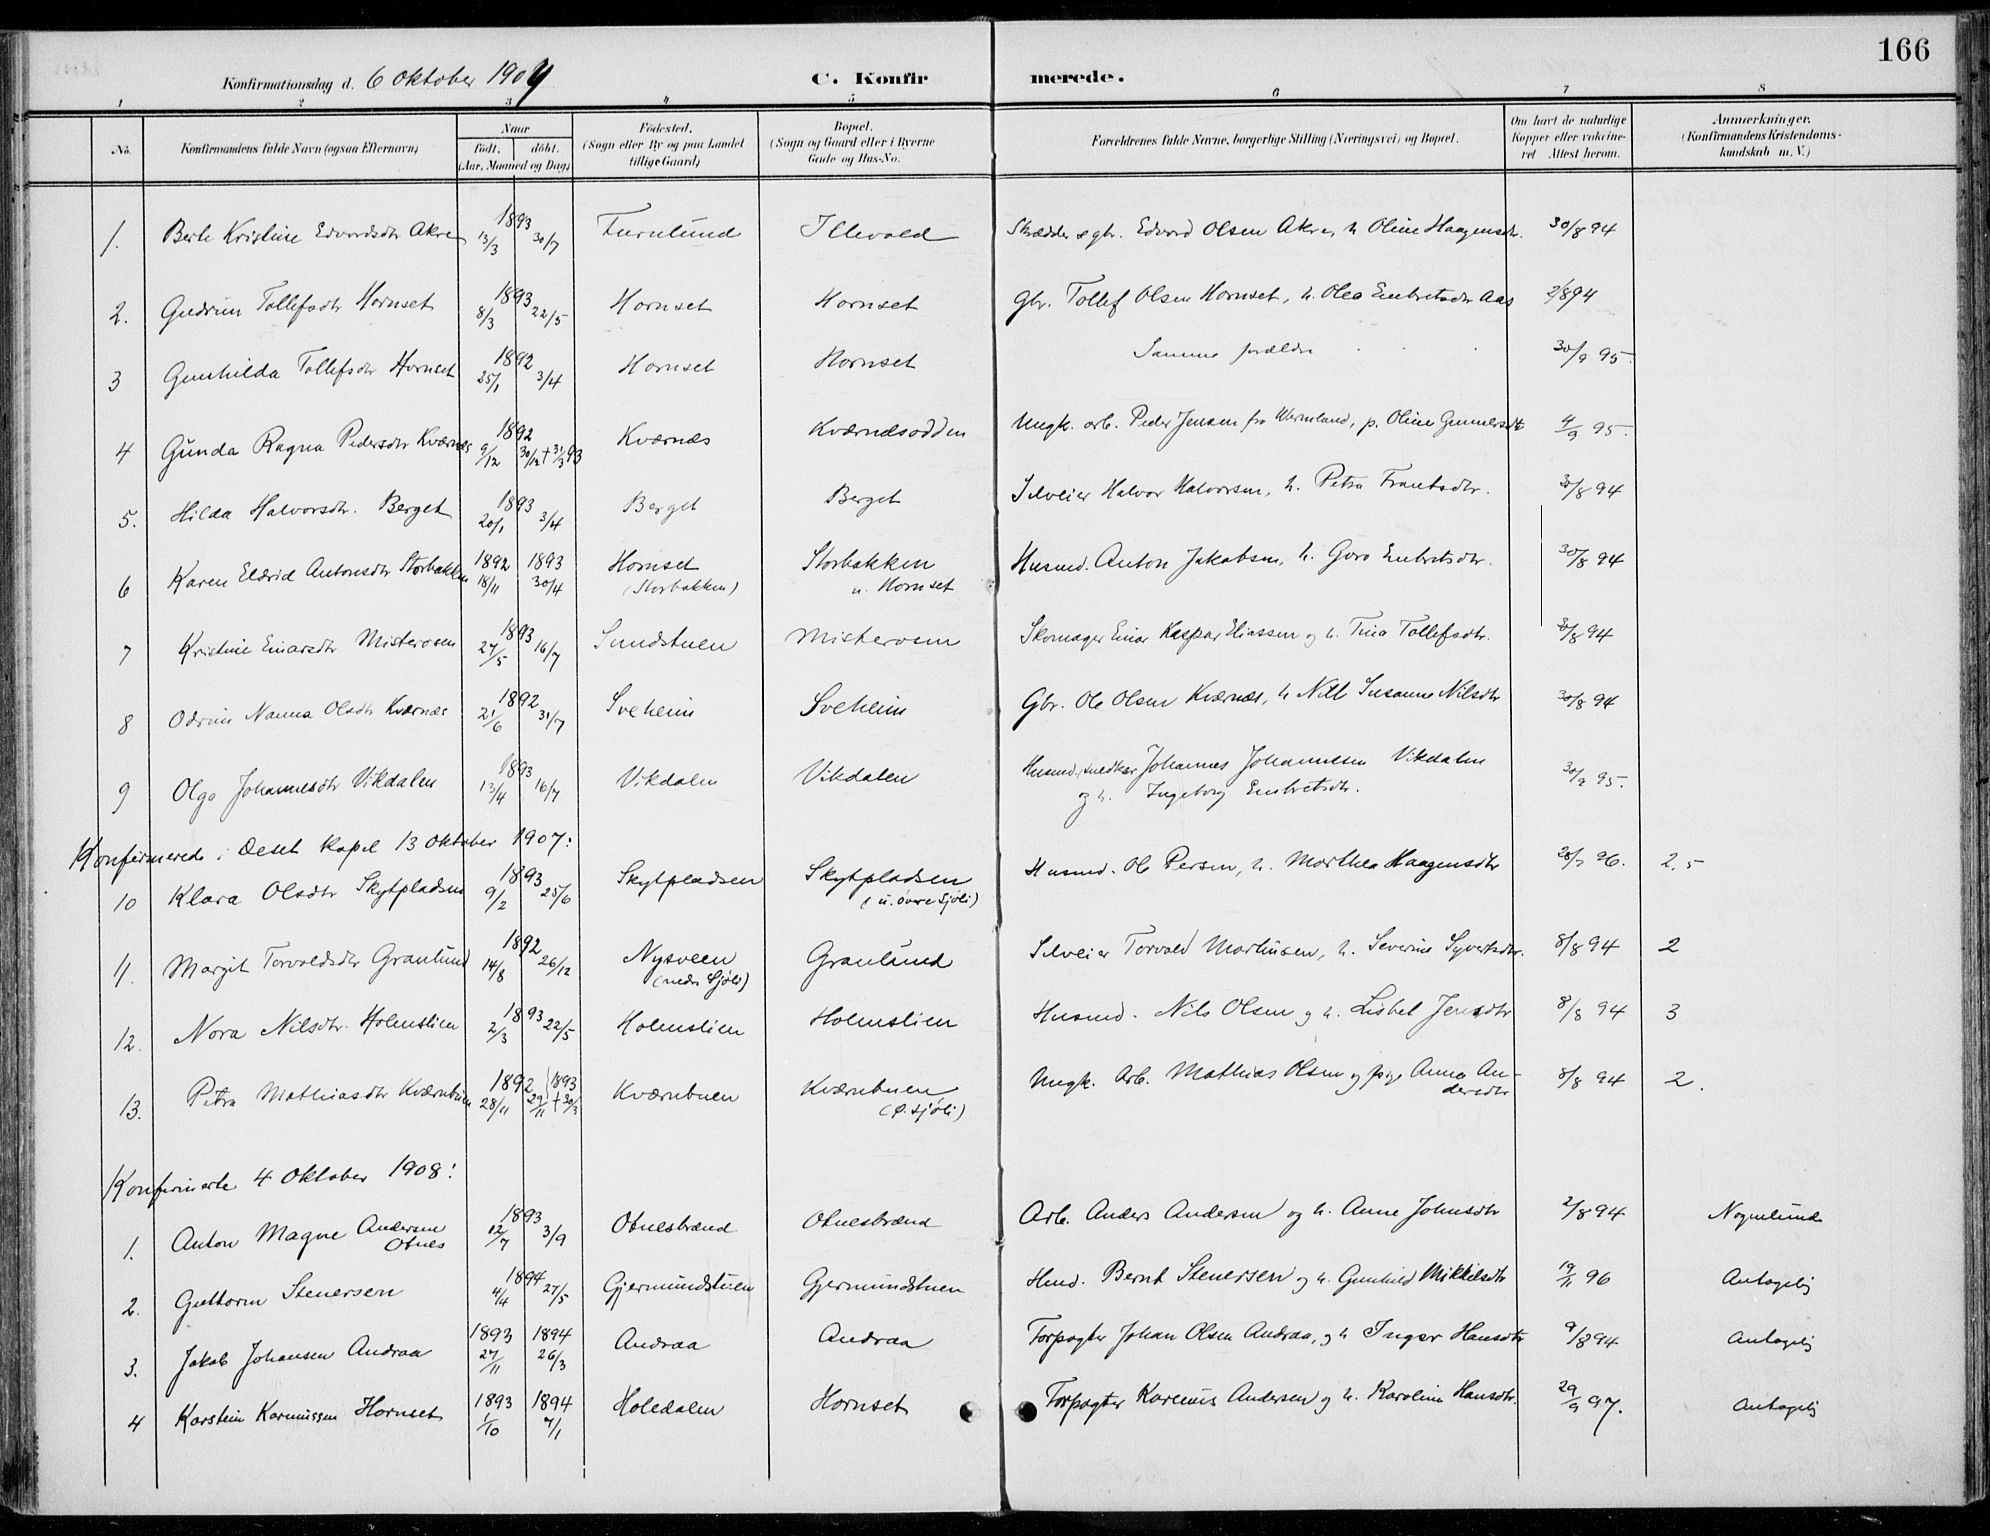 166
Konfirmationsdag d. 6 Oktober 1907
C. Konfirmerede.
1 2 3 4 5 6 7 8
No.
Konfirmandens fulde Navn (ogsaa Efternavn)
Naar
født. døbt.
(Aar, Maaned og Dag)
Fødested.
(Sogn eller By og paa Landet
tillige Gaard)
Bopæl.
(Sogn og Gaard eller i Byerne
Gade og Hus-No.
Forældrenes fulde Navne, borgerlige Stilling (Næringsvei) og Bopæl.
Om havt de naturlige
Kopper eller vakcine-
ret Attest herom.
Anmærkninger.
(Konfirmandens Kristendoms-
kundskab m. V.)
1. Berte Kristine Edvardsdtr Akre 1893 13/3 30/7 Furulund Illevold Skrædder & gbr. Edvard Olsen Akre, h. Oline Haagensdtr. 30/8 94
2. Gudrun Tollefsdtr Hornset 1893 8/3 22/5 Hornset Hornset Gbr. Tollef Olsen Hornset, h. Olea Embretsdtr Aas 2/8 94
3 Gunhilda Tollefsdtr Hornset 1892 25/1 3/4 Hornset Hornset Samme forældre 30/9 95.
4 Gunda Ragna Pedersdtr Kværnæs 1892 9/12 30/12 + 31/3 93 Kværnæs Kværnæsodden Ungk. arb. Peder Jensen fra Wermland, p. Oline Gunnersdtr 4/9 95.
5. Hilda Halvorsdtr. Berget 1893 20/1 3/4 Berget Berget Selveier Halvor Halvorsen, h. Petra Frantsdtr. 30/8 94
6 Karen Eldrid Antonsdtr Storbakken 1892 18/11 1893 30/4 Hornset (Storbakken) Storbakken u. Hornset Husmd. Anton Jakobsen, h. Goro Embretsdtr. 30/8 94
7 Kristine Einarsdtr Misterosen 1893 27/5 16/7 Sundstuen Misterosen Skomager Einar Kaspar Eliassen og h. Tina Tollefsdtr. 30/8 94
8 Odrun Nanna Olsdtr Kværnæs 1892 21/6 31/7 Sveheim Sveheim Gbr. Ole Olsen Kværnæs, h Susanne Nilsdtr 30/8 94
9 Olga Johannesdtr Vikdalen 1893 13/4 16/7 Vikdalen Vikdalen Husmd, snedker Johannes Johannesen Vikdalen
og h. Ingeborg Embretsdtr. 30/9 95.
Konfirmerede i Deset kapel 13 Oktober 1907:
10 Klara Olsdtr Skytpladsen 1893 9/2 25/6 Skytpladsen Skytpladsen (u. øvre Sjøli) Husmd. Ole Persen, h. Marthea Haagensdtr 96. 2,5
11. Margit Torvaldsdtr Granlund 1892 14/8 26/12 Nysveen (nedre Sjøli) Granlund Selveier Torvald Marthinsen, h. Severine Syvertsdtr. 8/8 94 2
12. Nora Nilsdtr. Holmslien 1893 2/3 22/5 Holmslien Holmslien Husmd. Nils Olsen og h. Lisbet Jensdtr 8/8 94 3
13. Petra Mathiasdtr Kværnbuen 1892 28/11 29/11 (1893 + 30/3 Kværnbuen Kværnbuen (Ø. Sjøli) Ungk. Arb. Mathias Olsen og pige Anna An-
dersdtr 8/8 94 2.
Konfirmerte 4 Oktober 1908:
1. Anton Magne Andersen Otnes 1893 12/7 3/9 Otnesbrænd Otnesbrænd Arb. Anders Andersen og h. Anne Johnsdtr 2/8 94 Nogenlunde
2. Guttorm Stenersen 1894 4/4 27/5 Gjermundstuen Gjermundstuen Husd. Bernt Stenersen og h. Gunhild Mikkelsdtr 19/11 96 Antagelig
3. Jakob Johansen Andraa 1893 27/11 1894 26/3 Andraa Andraa Forpagter Johan Olsen Andraa, og h Inger Hansdtr 9/8 94 Antagelig
4 Karstein Karenussen Hornset 1893 1/10 1894 7/1 Holedalen Hornset Forpagter Karenus Andersen og h. Karoline Hansdtr. 29/9 97. Antagelig